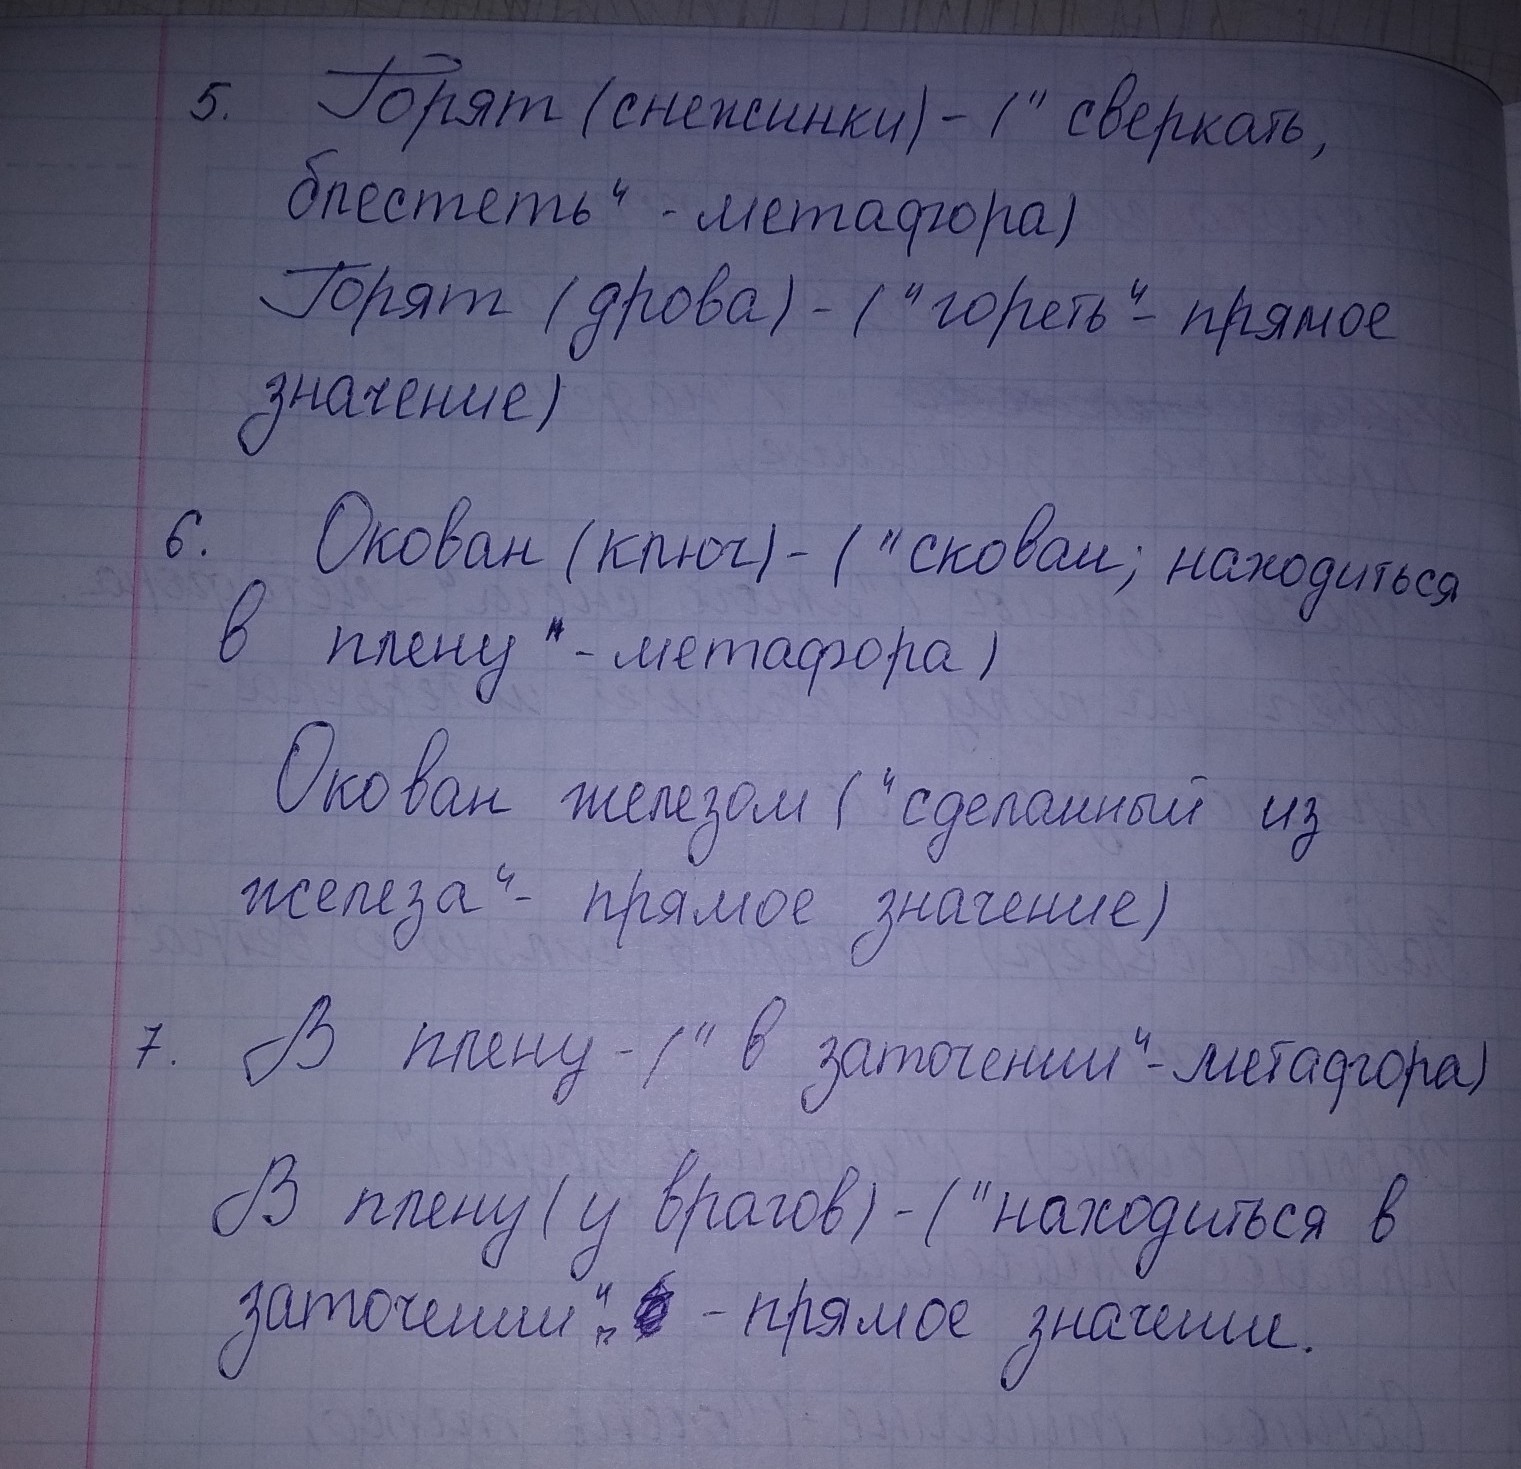 5. Горят (снежинки) - (" сверкать,
блестеть" - метафора)
Горят (дрова) - ("гореть" - прямое
значение)
6. Окован (ключ) - ("скован; находиться
в плену" - метафора)
Окован железом ("сделанный из
железа" - прямое значение)
7. В плену - (" в заточении" - метафора)
В плену (у врагов) - ("находиться в
заточении" - прямое значение.